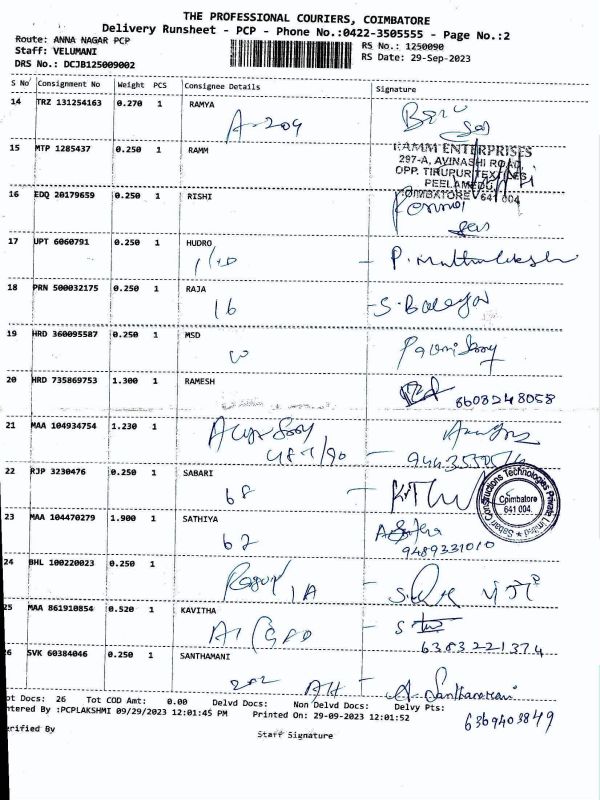 THE PROFESSIONAL COURIERS, COIMBATORE
Delivery Runsheet - PCP - Phone No.:0422-3505555 - Page No.:2
Route: ANNA NAGAR PCP
Staff: VELUMANI
DRS No.: DCJB125009002
RS No.: 1250090
RS Date: 29-Sep-2023
S No Consignment No Weight PCS Consignee Details Signature
14 TRZ 131254163 0.270 1 RAMYA
A-204
15 MTP 1285437 0.250 1 RAMM
RAMM ENTERPRISES
297-A, AVINASHI ROAD
OPP. TIRUPUR TEXTILES
PEELAMEDU
COIMBATORE 641 004
16 EDQ 20179659 0.250 1 RISHI
17 UPT 6060791 0.250 1 HUDRO
18 PRN 500032175 0.250 1 RAJA
16
19 HRD 360095587 0.250 1 MSD
20 HRD 735869753 1.300 1 RAMESH
6608248058
21 MAA 104934754 1.230 1
22 RJP 3230476 0.250 1 SABARI
68
Sabari Constructions Technologies Private Limited
Coimbatore
641 004.
23 MAA 104470279 1.900 1 SATHIYA
62
9489331010
24 BHL 100220023 0.250 1
1A
25 MAA 861910854 0.520 1 KAVITHA
6383221374
6 SVK 60384046 0.250 1 SANTHAMANI
202
A. Santhamani
6369403849
ot Docs: 26 Tot COD Amt: 0.00 Delvd Docs: Non Delvd Docs: Delvy Pts:
ntered By :PCPLAKSHMI 09/29/2023 12:01:45 PM Printed On: 29-09-2023 12:01:52
erified By
Staff Signature